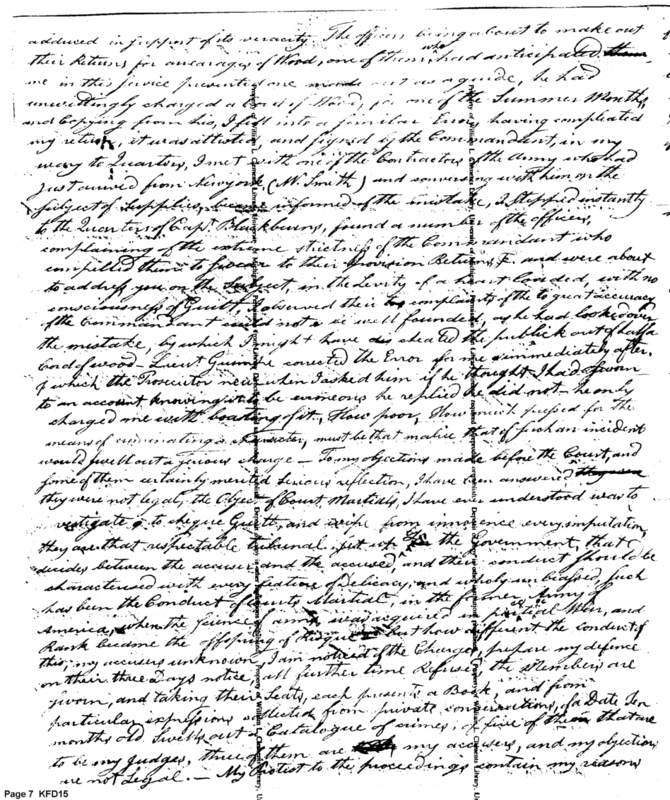 adduced in support of its veracity. The officers being about to make out
their Returns for arrearages of Wood, one of them who had anticipated
me in this service presented one as a guide, he had
unwittingly charged a Cord of Wood, for one of the Summer Months,
and Copying from his, I fell into a similar Error, having compleated
my return, it was attested and signed by the Commandant, in my
way to Quarters, I met with one of the Contractors of the Army who had
just arrived from Newyork (Mr. Smith) and conversing with him on the
subject of supplies, became informed of the mistake, I stepped instantly
to the Quarters of Cap. Blackburns, found a number of the officers,
complaining of the extreme strictness of the Commandant who
compelled them to swear to their Provision Returns, & and were about
to address you on the subject, in the Levity of a heart Loaded, with no
consciousness of Guilt, I observed their complaints of the to great accuracy
of the Commandant could not be well founded, as he had looked over
the mistake, by which I might have cheated the publick out of half a
Cord of wood - Lieut corrected the Error for me immediately after,
of which the Prosecutor when I asked him if he thought I had sworn
to an account knowing it to be erroneous he replied he did not - he only
charged me with boasting of it, How poor, How much pressed for the
means of criminating a Character, must be that malice that of such an incident
would swell out a serious charge - To my objections made before the Court, and
some of them certainly merited serious reflection, I have been answered
they were not legal, the Object of Court Martials, I have ever understood was to
Guilt, and wipe from innocence every imputation,
they are that respectable tribunal, set up the Government, that
decides between the accuser and the accused, and their conduct should be
characterised with every feature of Delicacy, and wholy unbiassed, such
has been the Conduct of Courts Martial, in the former Army of
America, when the science of arms was acquired in War, and
Rank became the offspring of But how different the conduct of
this, my accusers unknown, I am noticed of the Charges, prepare my defence
on their three Days notice, all further time Refused, the Members are
sworn, and taking their Seats, each presents a Book, and from
particular expressions collected from private conversations, of a Date Ten
months old Swells out a Catalogue of crimes, of five of them that are
to be my judges, three of them are my accusers, and my objections
are not Legal. - My Protest to the proceedings contain my reasons
Page 7 KFD15